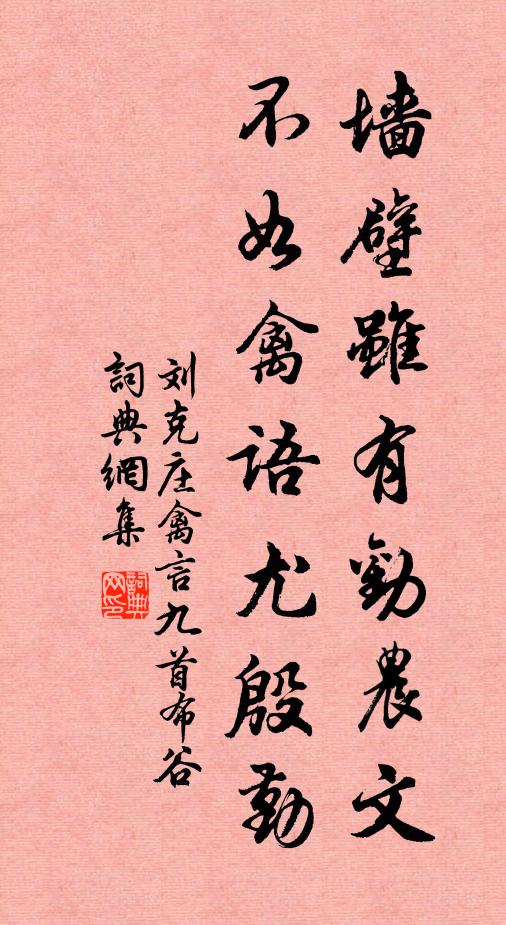 墙壁雖有勸農文
不如禽語尤殷勤
刘克庄禽言九首布谷
詞典網集
詞典网印